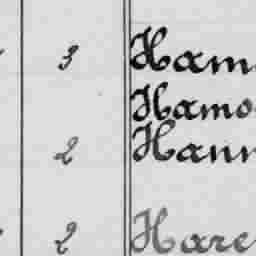 3 Ham
Hamo
2 Hann
2 Hare